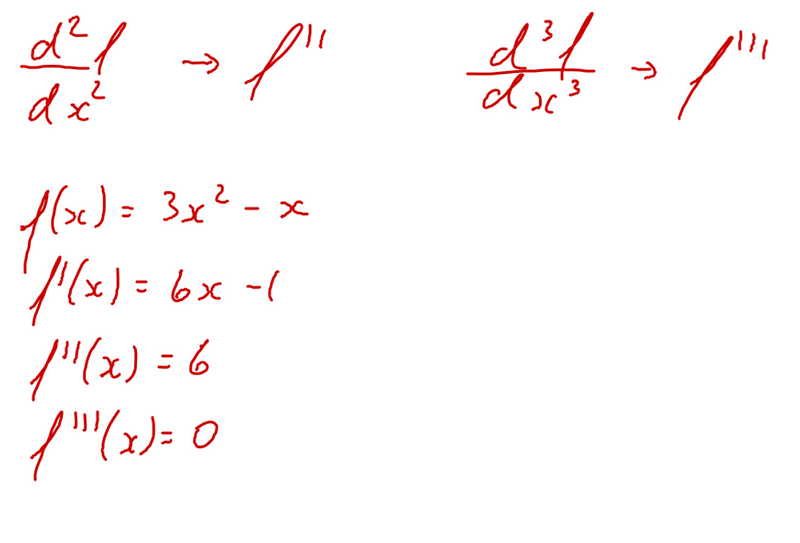 d²f/dx² → f'' d³f/dx³ → f'''
f(x) = 3x² - x
f'(x) = 6x - 1
f'''(x) = 6
f''''(x) = 0